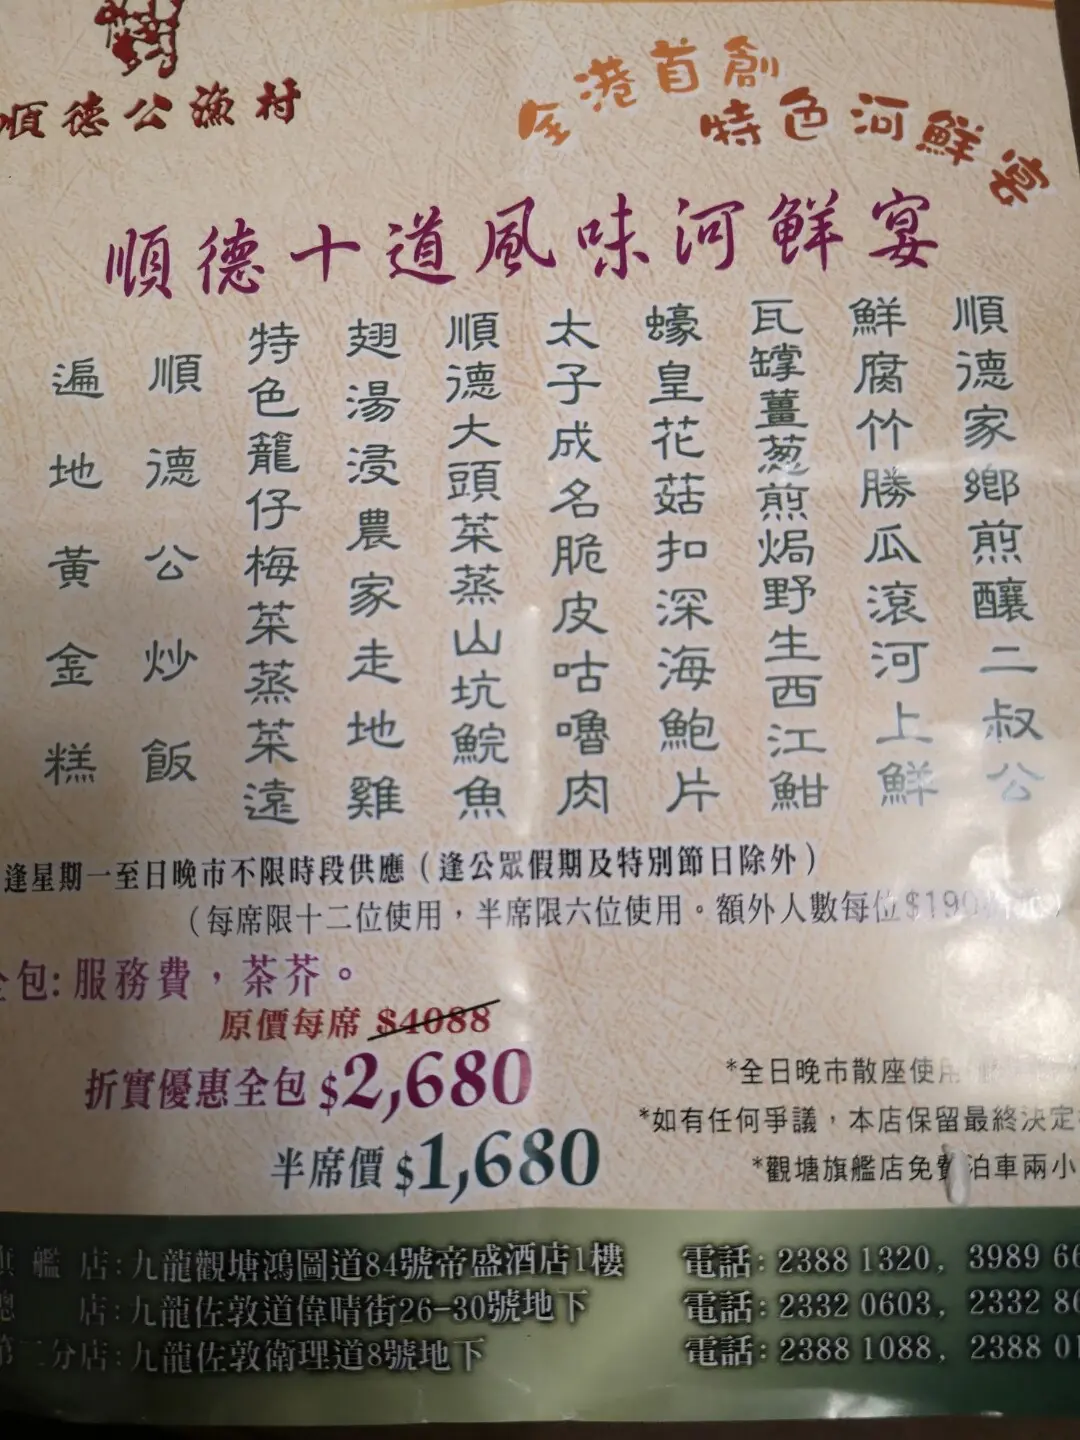 順德公漁村
全港首創
特色河鮮宴
順德十道風味河鮮宴
順德家鄉煎釀二叔公
鮮腐竹勝瓜滾河上鮮
瓦罉薑葱煎焗野生西江魽
蠔皇花菇扣深海鮑片
太子成名脆皮咕嚕肉
順德大頭菜蒸山坑鯇魚
翅湯浸農家走地雞
特色籠仔梅菜蒸菜遠
順德公炒飯
遍地黃金糕
逢星期一至日晚市不限時段供應（逢公眾假期及特別節日除外）
（每席限十二位使用，半席限六位使用。額外人數每位$190
全包:服務費，茶芥。
原價每席 $4088
折實優惠全包 $2,680
半席價 $1,680
*全日晚市散座使用
*如有任何爭議，本店保留最終決定
*觀塘旗艦店免費泊車兩小
旗艦店:九龍觀塘鴻圖道84號帝盛酒店1樓 電話: 2388 1320, 3989 66
總店:九龍佐敦道偉晴街26-30號地下 電話: 2332 0603, 2332 80
第二分店:九龍佐敦衛理道8號地下 電話: 2388 1088, 2388 01